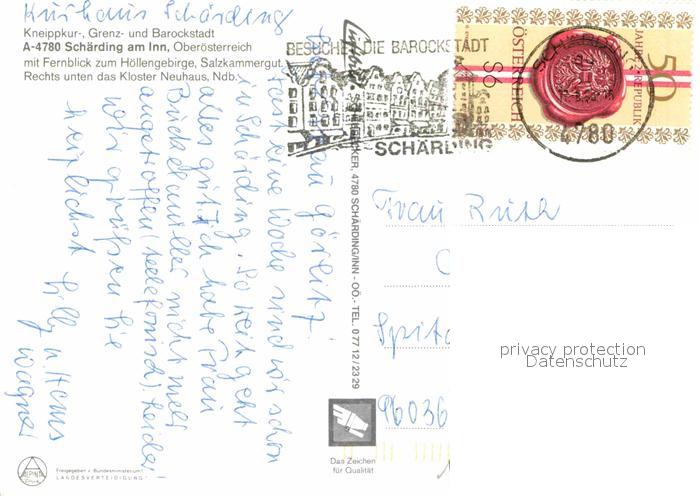 Kurhaus Schärding
Kneippkur-, Grenz- und Barockstadt
A-4780 Schärding am Inn, Oberösterreich
mit Fernblick zum Höllengebirge, Salzkammergut.
Rechts unten das Kloster Neuhaus, Ndb.
BESUCHET DIE BAROCKSTADT
SCHÄRDING
SCHÄRDING
4780
50
JAHRE 2. REPUBLIK
S6
ÖSTERREICH
Frau Görlitz!
Fast eine Woche sind wir schon
in Schärding. So weit geht
alles gut. Ich habe Frau
nicht mehr
angetroffen (telefonisch). Leider!
Wir grüßen Sie
herzlichst
u. Hans
Wagner
4780 SCHÄRDING/INN - OÖ.- TEL. 0 77 12 / 23 29
Frau Ruth
Spita
96036
privacy protection
Datenschutz
Das Zeichen
für Qualität
ALPINA
Freigegeben v. Bundesministerium f.
LANDESVERTEIDIGUNG